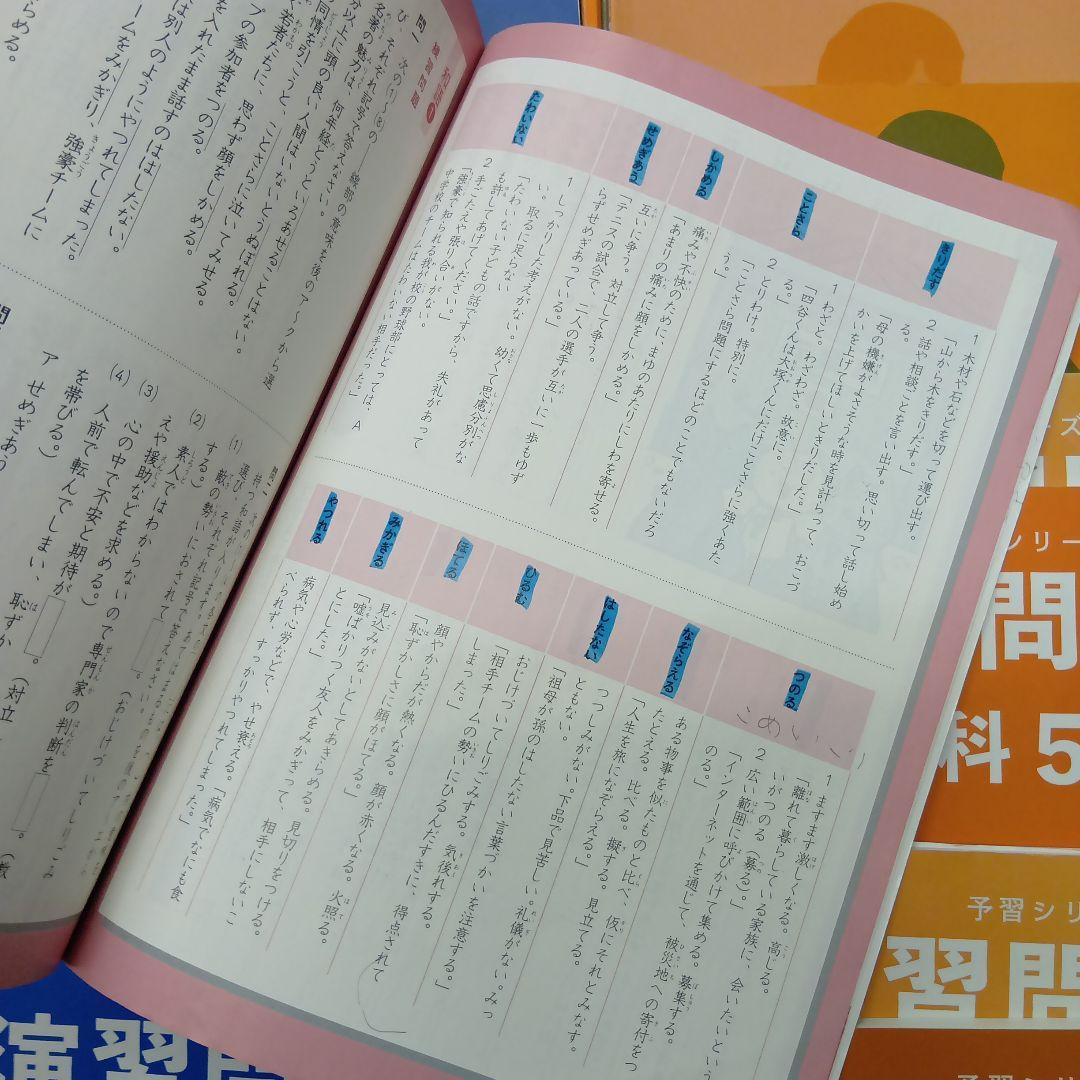 きりだす
1 木材や石などを切って運び出す。
「山から木をきりだす。」
2 話や相談ごとを言い出す。思い切って話し始め
る。
「母の機嫌がよさそうな時を見計らって、おこづ
かいを上げてほしいときりだした。」
ことさら
1 わざと。わざわざ。故意に。
「四谷くんは大塚くんにだけことさらに強くあた
る。」
2 とりわけ。特別に。
「ことさら問題にするほどのことでもないだろ
う。」
しかめる
痛みや不快のために、まゆのあたりにしわを寄せる。
「あまりの痛みに顔をしかめる。」
せめぎあう
互いに争う。対立して争う。
「テニスの試合で、二人の選手が互いに一歩もゆず
らずせめぎあっている。」
たわいない
1 しっかりした考えがない。幼くて思慮分別がな
い。取るに足らない
「たわいない子どもの話ですから、失礼があって
も許してあげてください。」
2 手ごたえや張り合いがない。
「強豪で知られる我が校の野球部にとっては、
中学校のチームはたわいない相手だった。」
A
つのる
1 ますます激しくなる。高じる。
「離れて暮らしている家族に、会いたいという
いがつのる（募る）。」
2 広い範囲に呼びかけて集める。募集する。
「インターネットを通じて、被災地への寄付をつ
のる。」
なぞらえる
ある物事を似たものと比べ、仮にそれとみなす。
たとえる。比べる。擬する。見立てる。
「人生を旅になぞらえる。」
はしたない
つつしみがない。下品で見苦しい。礼儀がない。みっ
ともない。
「祖母が孫のはしたない言葉づかいを注意する。」
ひるむ
おじけづいてしりごみする。気後れする。
「相手チームの勢いにひるんだすきに、得点されて
しまった。」
ほてる
顔やからだが熱くなる。顔が赤くなる。火照る。
「恥ずかしさに顔がほてる。」
みかぎる
見込みがないとしてあきらめる。見切りをつける。
「嘘ばかりつく友人をみかぎって、相手にしないこ
とにした。」
やつれる
病気や心労などで、やせ衰える。「病気でなにも食
べられず、すっかりやつれてしまった。」
問一 次の(1)~(8)の
線部の意味を後のア〜クから選
び、それぞれ記号で答えなさい。
名著の魅力は、何年経とうといろあせることはない。
分以上に頭の良い人間はいないとうぬぼれる。
同情を引こうと、ことさらに泣いてみせる。
若者たちに、思わず顔をしかめる。
プの参加者をつのる。
を入れたまま話すのははしたない。
は別人のようにやつれてしまった。
ームをみかぎり、強豪チームに
らめる。
問二
(1) 敵の勢いにおされて
する。）
(2) 素人ではわからないので専門家の判断を
えや援助などを求める。）
(3) 心の中で不安と期待が
。（対立
(4) 人前で転んでしまい、恥ずか
を帯びる。）
ア せめぎあう
問
科5
予習シリ
習問
演習問